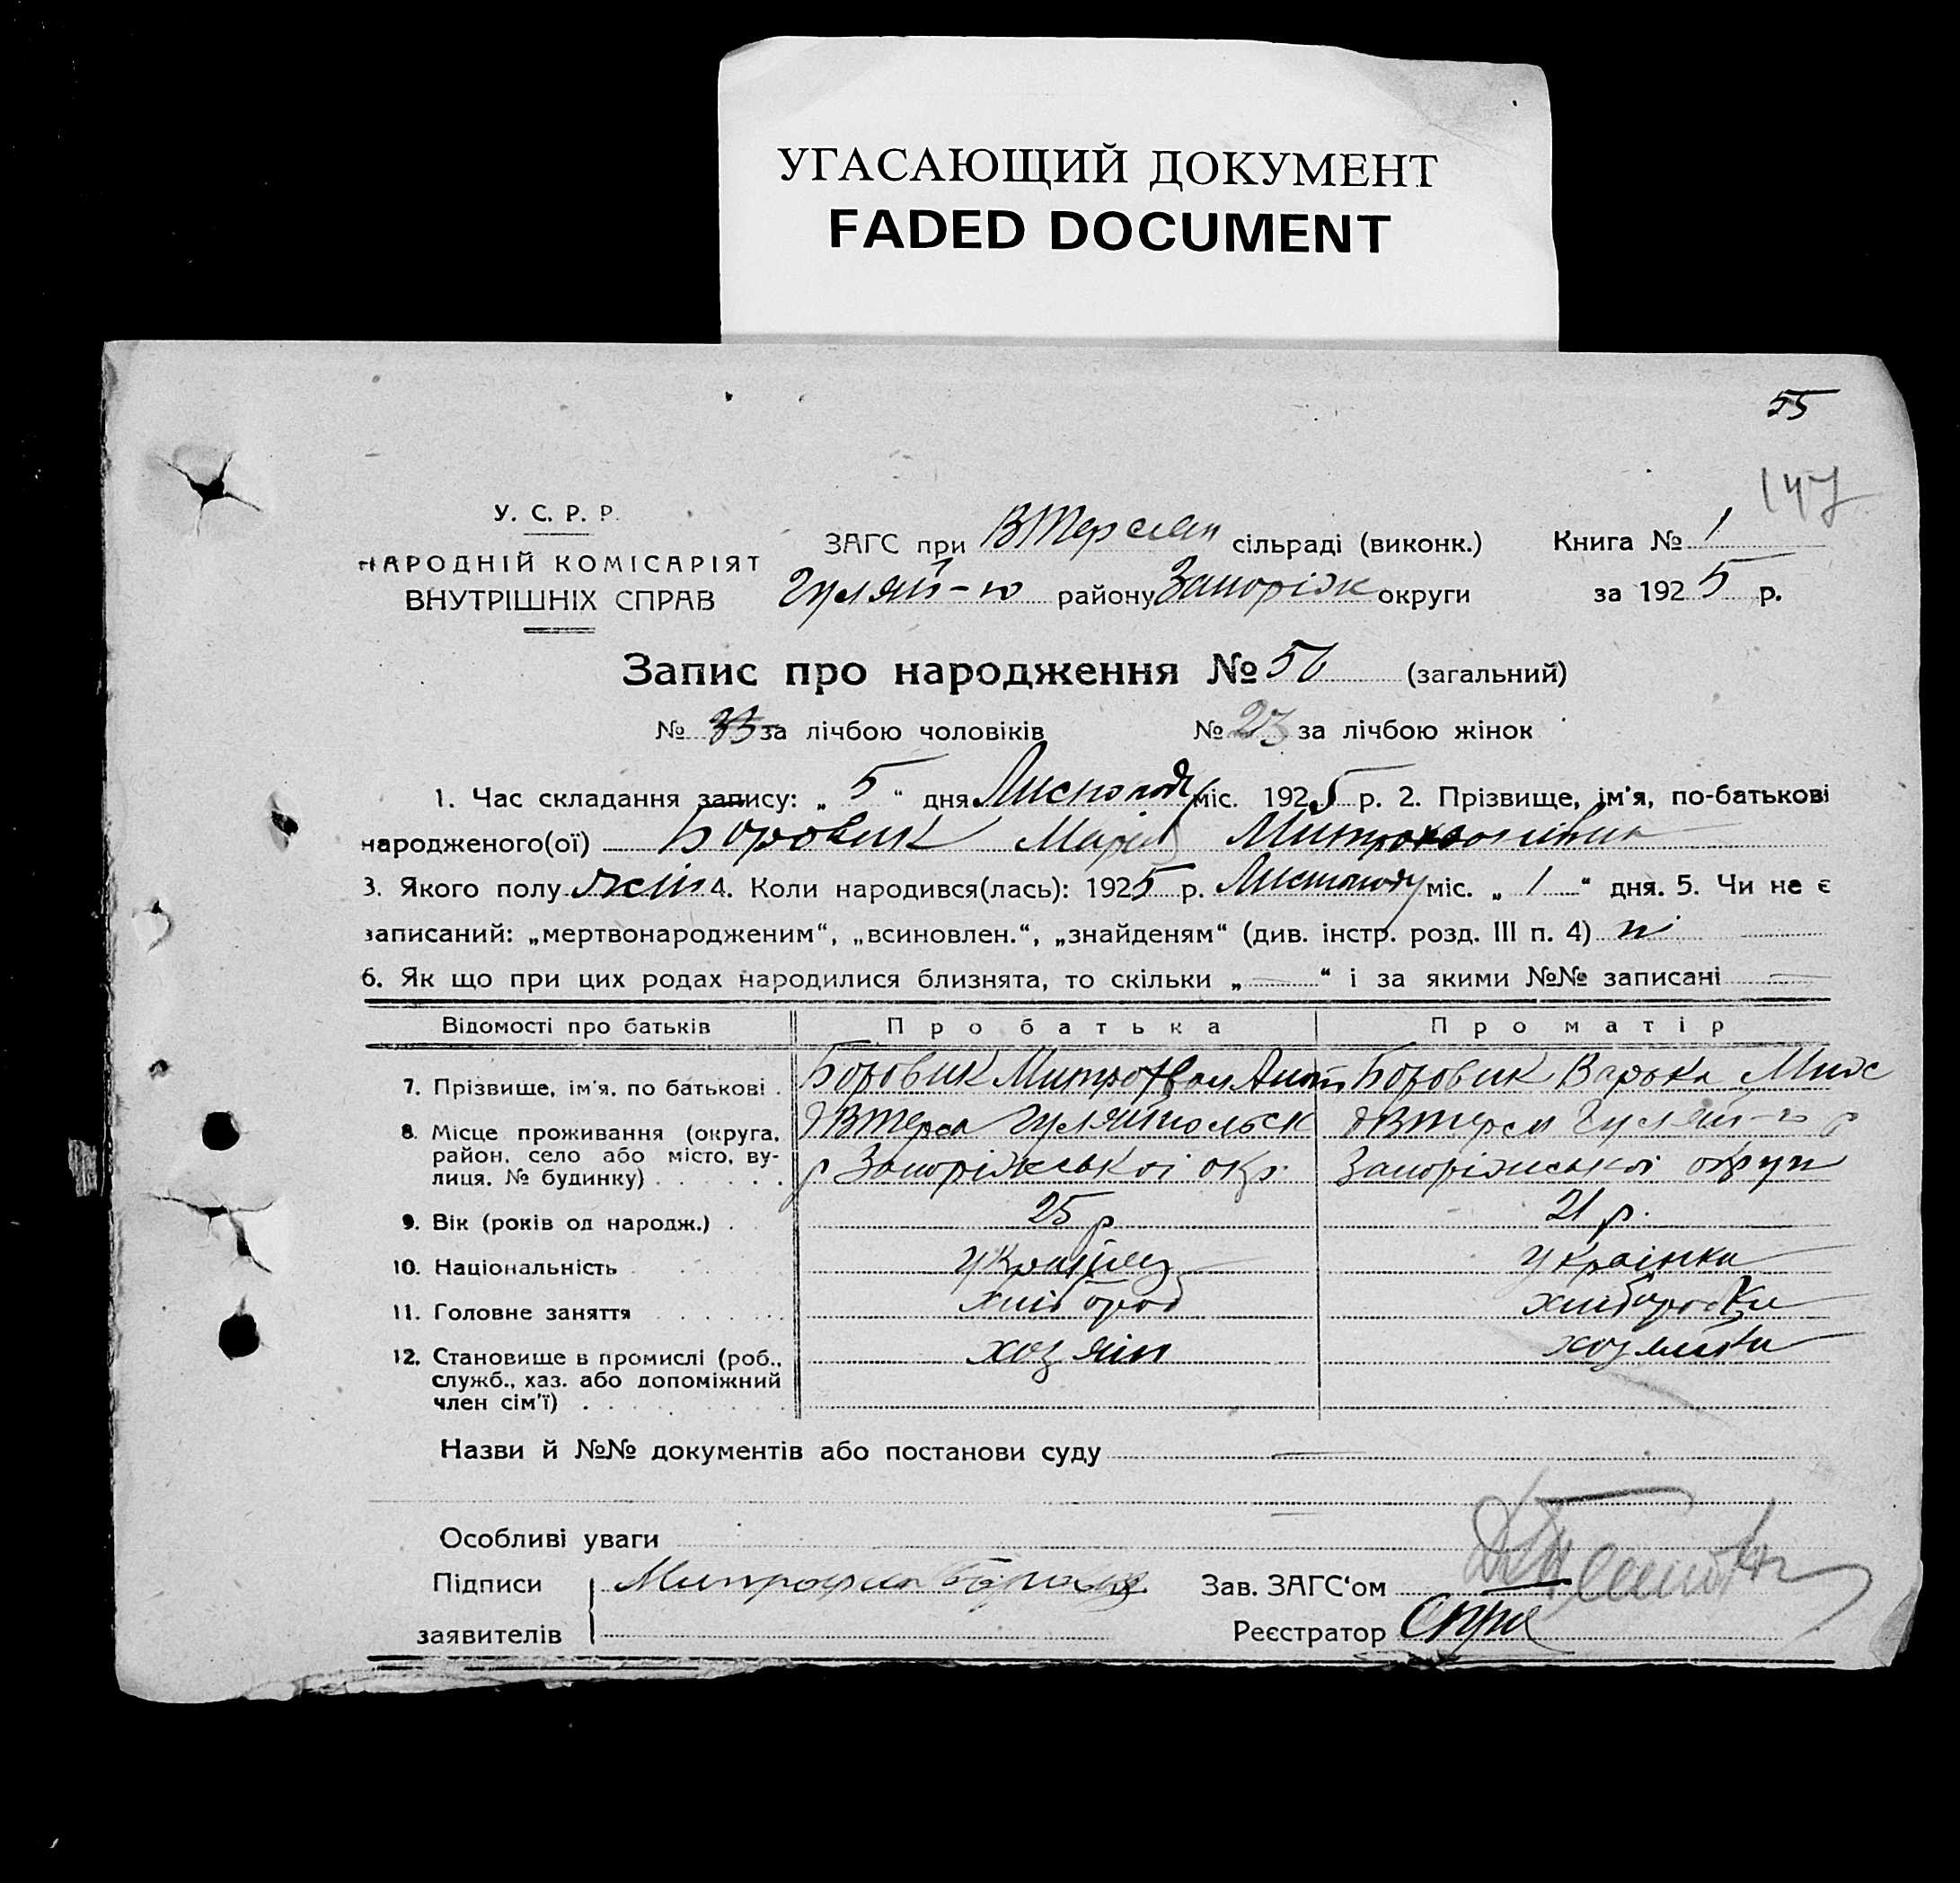 УГАСАЮЩИЙ ДОКУМЕНТ
FADED DOCUMENT
55
147
У. С. Р. Р.
НАРОДНІЙ КОМІСАРІЯТ
ВНУТРІШНІХ СПРАВ
ЗАГС при сільраді (виконк.) Книга № 1
Гуляй-ю району Запоріж округи за 1925 р.
Запис про народження № 56 (загальний)
№ 33 за лічбою чоловіків № 23 за лічбою жінок
1. Час складання запису: „ 5 “ дня Листопаду міс. 1925 р. 2. Прізвище, ім'я, по-батькові
народженого(ої) Боровик Марія Митрофонівна
3. Якого полу жін 4. Коли народився(лась): 1925 р. Листопаду міс. „ 1 “ дня. 5. Чи не є
записаний: „мертвонародженим“, „всиновлен.“, „знайденям“ (див. інстр. розд. III п. 4) ні
6. Як що при цих родах народилися близнята, то скільки „ “ і за якими №№ записані
Відомості про батьків Про батька Про матір
7. Прізвище, ім'я, по батькові . Боровик Митрофан Боровик Варька
8. Місце проживання (округа, Гуляйпольськ Гуляй-
район, село або місто, ву- р Запоріжської окр. Запоріжської округи
лиця, № будинку) . . . . . .
9. Вік (років од народж.) . 25 р 21 р.
10. Національність Українец Українка
11. Головне заняття хлібороб хліборобка
12. Становище в промислі (роб., хозяїн хозяйка
служб., хаз. або допоміжний
член сім'ї) .
Назви й №№ документів або постанови суду
Особливі уваги
Підписи Митрофан Зав. ЗАГС‘ом
заявителів Реєстратор